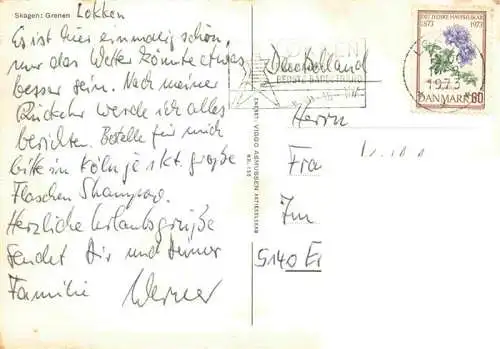 Skagen: Grenen
Løkken
Es ist hier einmalig schön
nur das Wetter könnte etwas
besser sein. Nach meiner
Rückehr werde ich alles
berichten. Bestelle für mich
bitte in Köln je 1 kt große
Flaschen Shampoo.
Herzliche Urlaubsgrüße
sendet Dir und Deiner
Familie Werner
ENERET: VIGGO ASMUSSEN
Deutschland
Herrn
Fra
Im
5140 Er
DET DANSKE HAVESELSKAB
1873 1973
1973
DANMARK 60